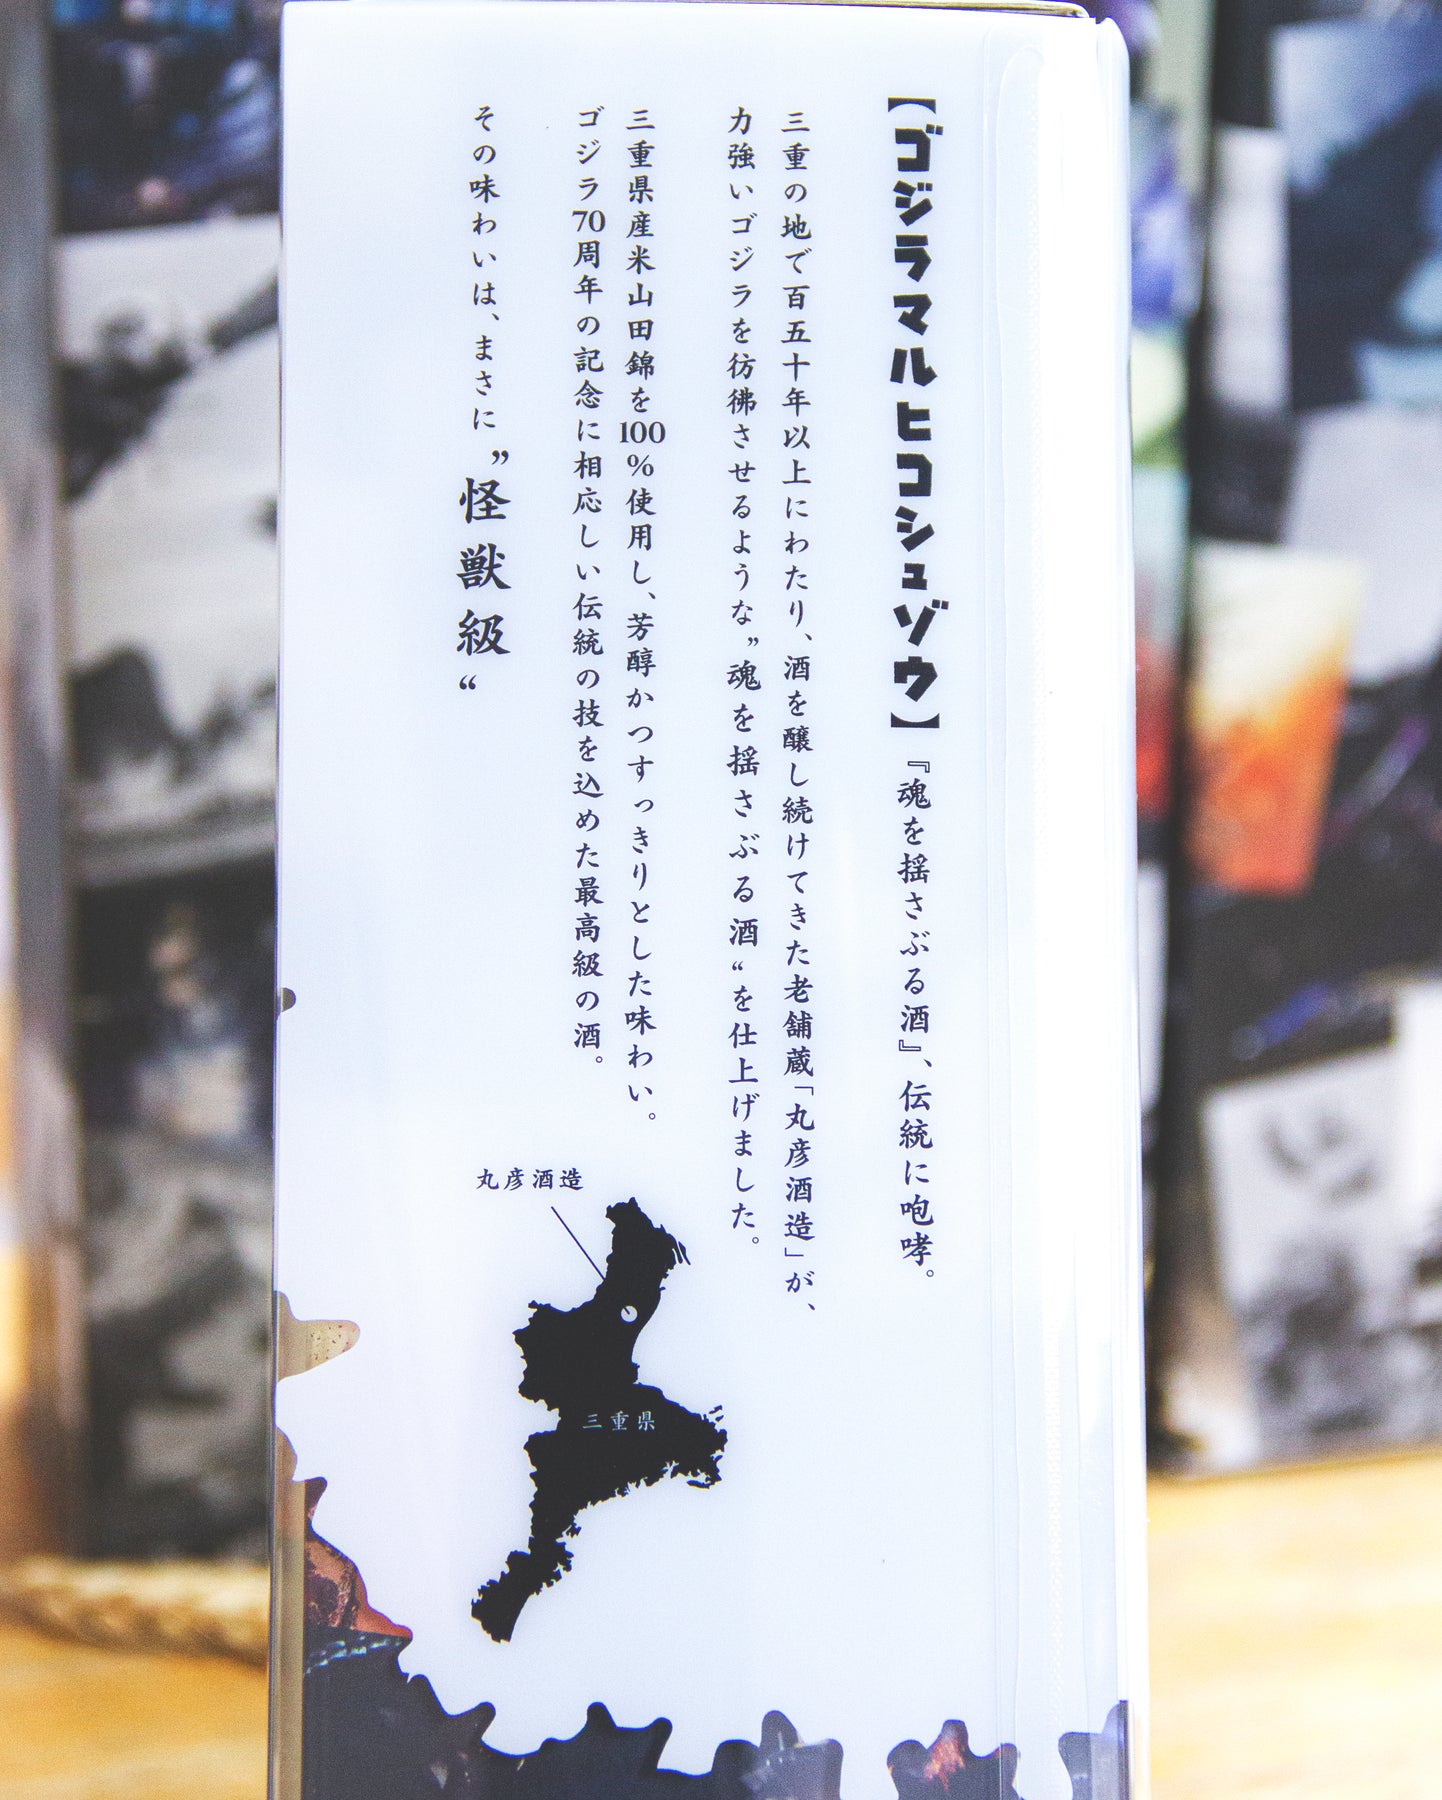 【ゴジラマルヒコシュゾウ】『魂を揺さぶる酒』、伝統に咆哮。
三重の地で百五十年以上にわたり、酒を醸し続けてきた老舗蔵「丸彦酒造」が、
力強いゴジラを彷彿させるような”魂を揺さぶる酒“を仕上げました。
三重県産米山田錦を100%使用し、芳醇かつすっきりとした味わい。
ゴジラ70周年の記念に相応しい伝統の技を込めた最高級の酒。
その味わいは、まさに”怪獣級“
丸彦酒造
三重県